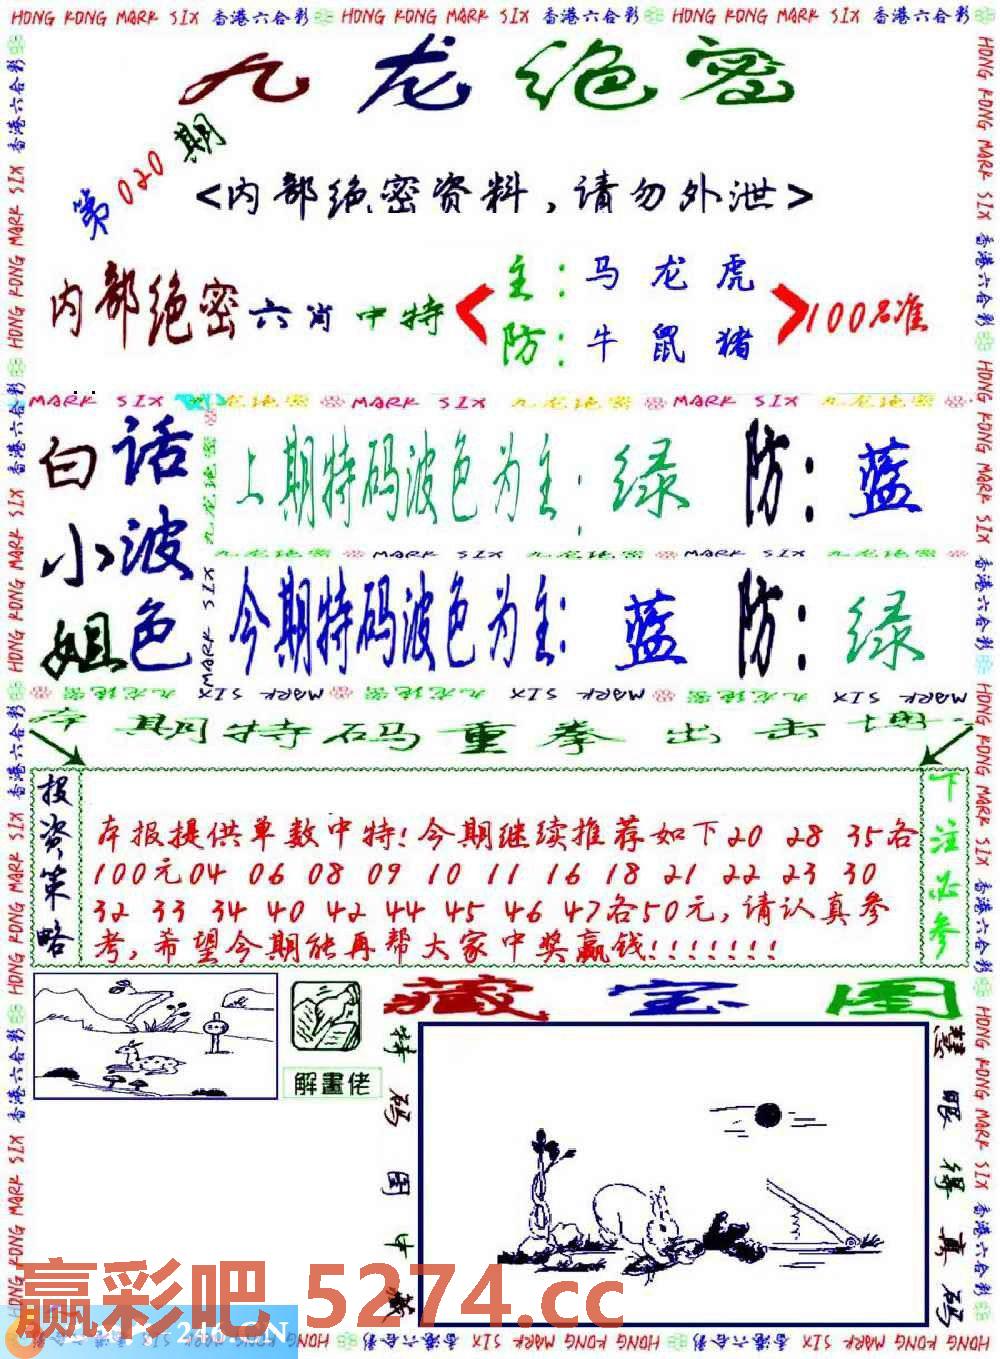 HONG KONG MARK SIX 香港六合彩 HONG KONG MARK SIX 香港六合彩 HONG KONG MARK SIX 香港六合彩
九龙绝密
第020期
<内部绝密资料，请勿外泄>
内部绝密六肖中特
主：马 龙 虎
防：牛 鼠 猪
100%准
MARK SIX 九龙绝密 MARK SIX 九龙绝密 MARK SIX 九龙绝密
白小姐
话波色
上期特码波色为主：绿 防：蓝
九龙绝密 MARK SIX 九龙绝密 MARK SIX 九龙绝密
今期特码波色为主：蓝 防：绿
本期特码重拳出击
投资策略
本报提供单数中特！今期继续推荐如下20 28 35各
100元04 06 08 09 10 11 16 18 21 22 23 30
32 33 34 40 42 44 45 46 47各50元，请认真参
考，希望今期能再帮大家中奖赢钱！！！！！！！
下注必参
藏宝图
解畫佬
特码图中藏
慧眼得真码
赢彩吧 5274.cc
246.CN
HONG KONG MARK SIX 香港六合彩